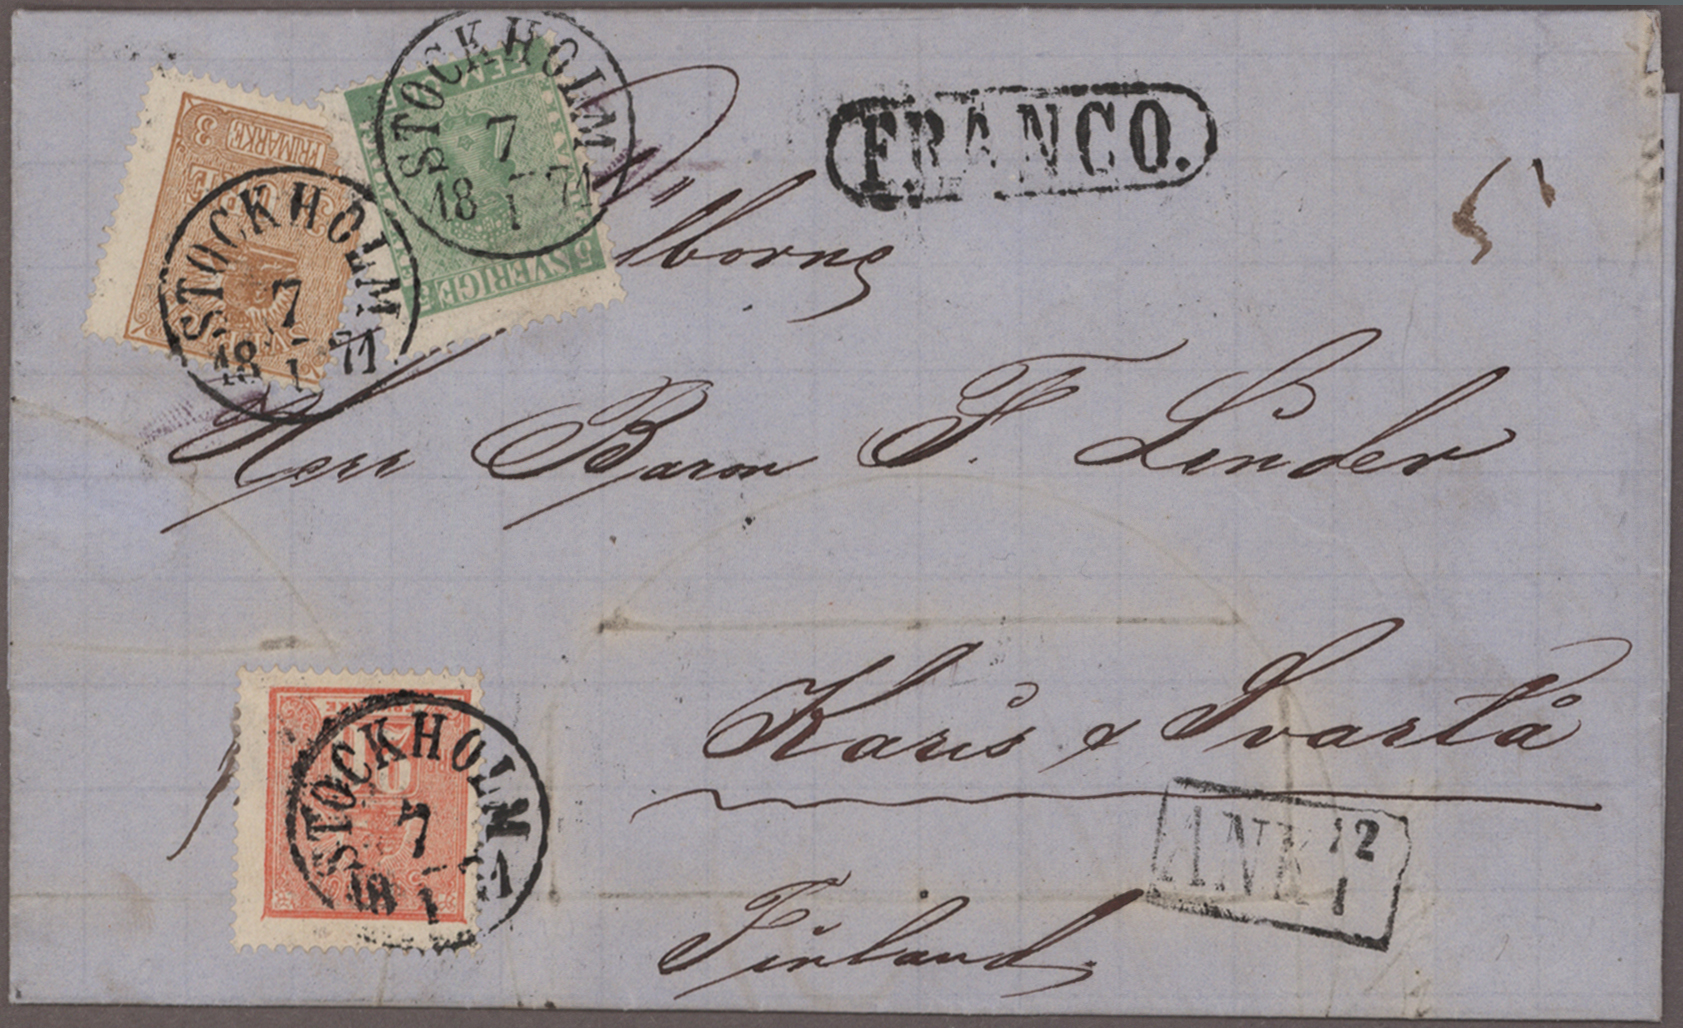 STOCKHOLM
7
18 1 71
FRANCO.
FEM ÖRE
SVERIGE
5
5
3
FRIMÄRKE
STOCKHOLM
7
18 1 71
Herr Baron F. Linder
Karis & Svartå
Finland
STOCKHOLM
7
18 1 71
20
ANK 12
1